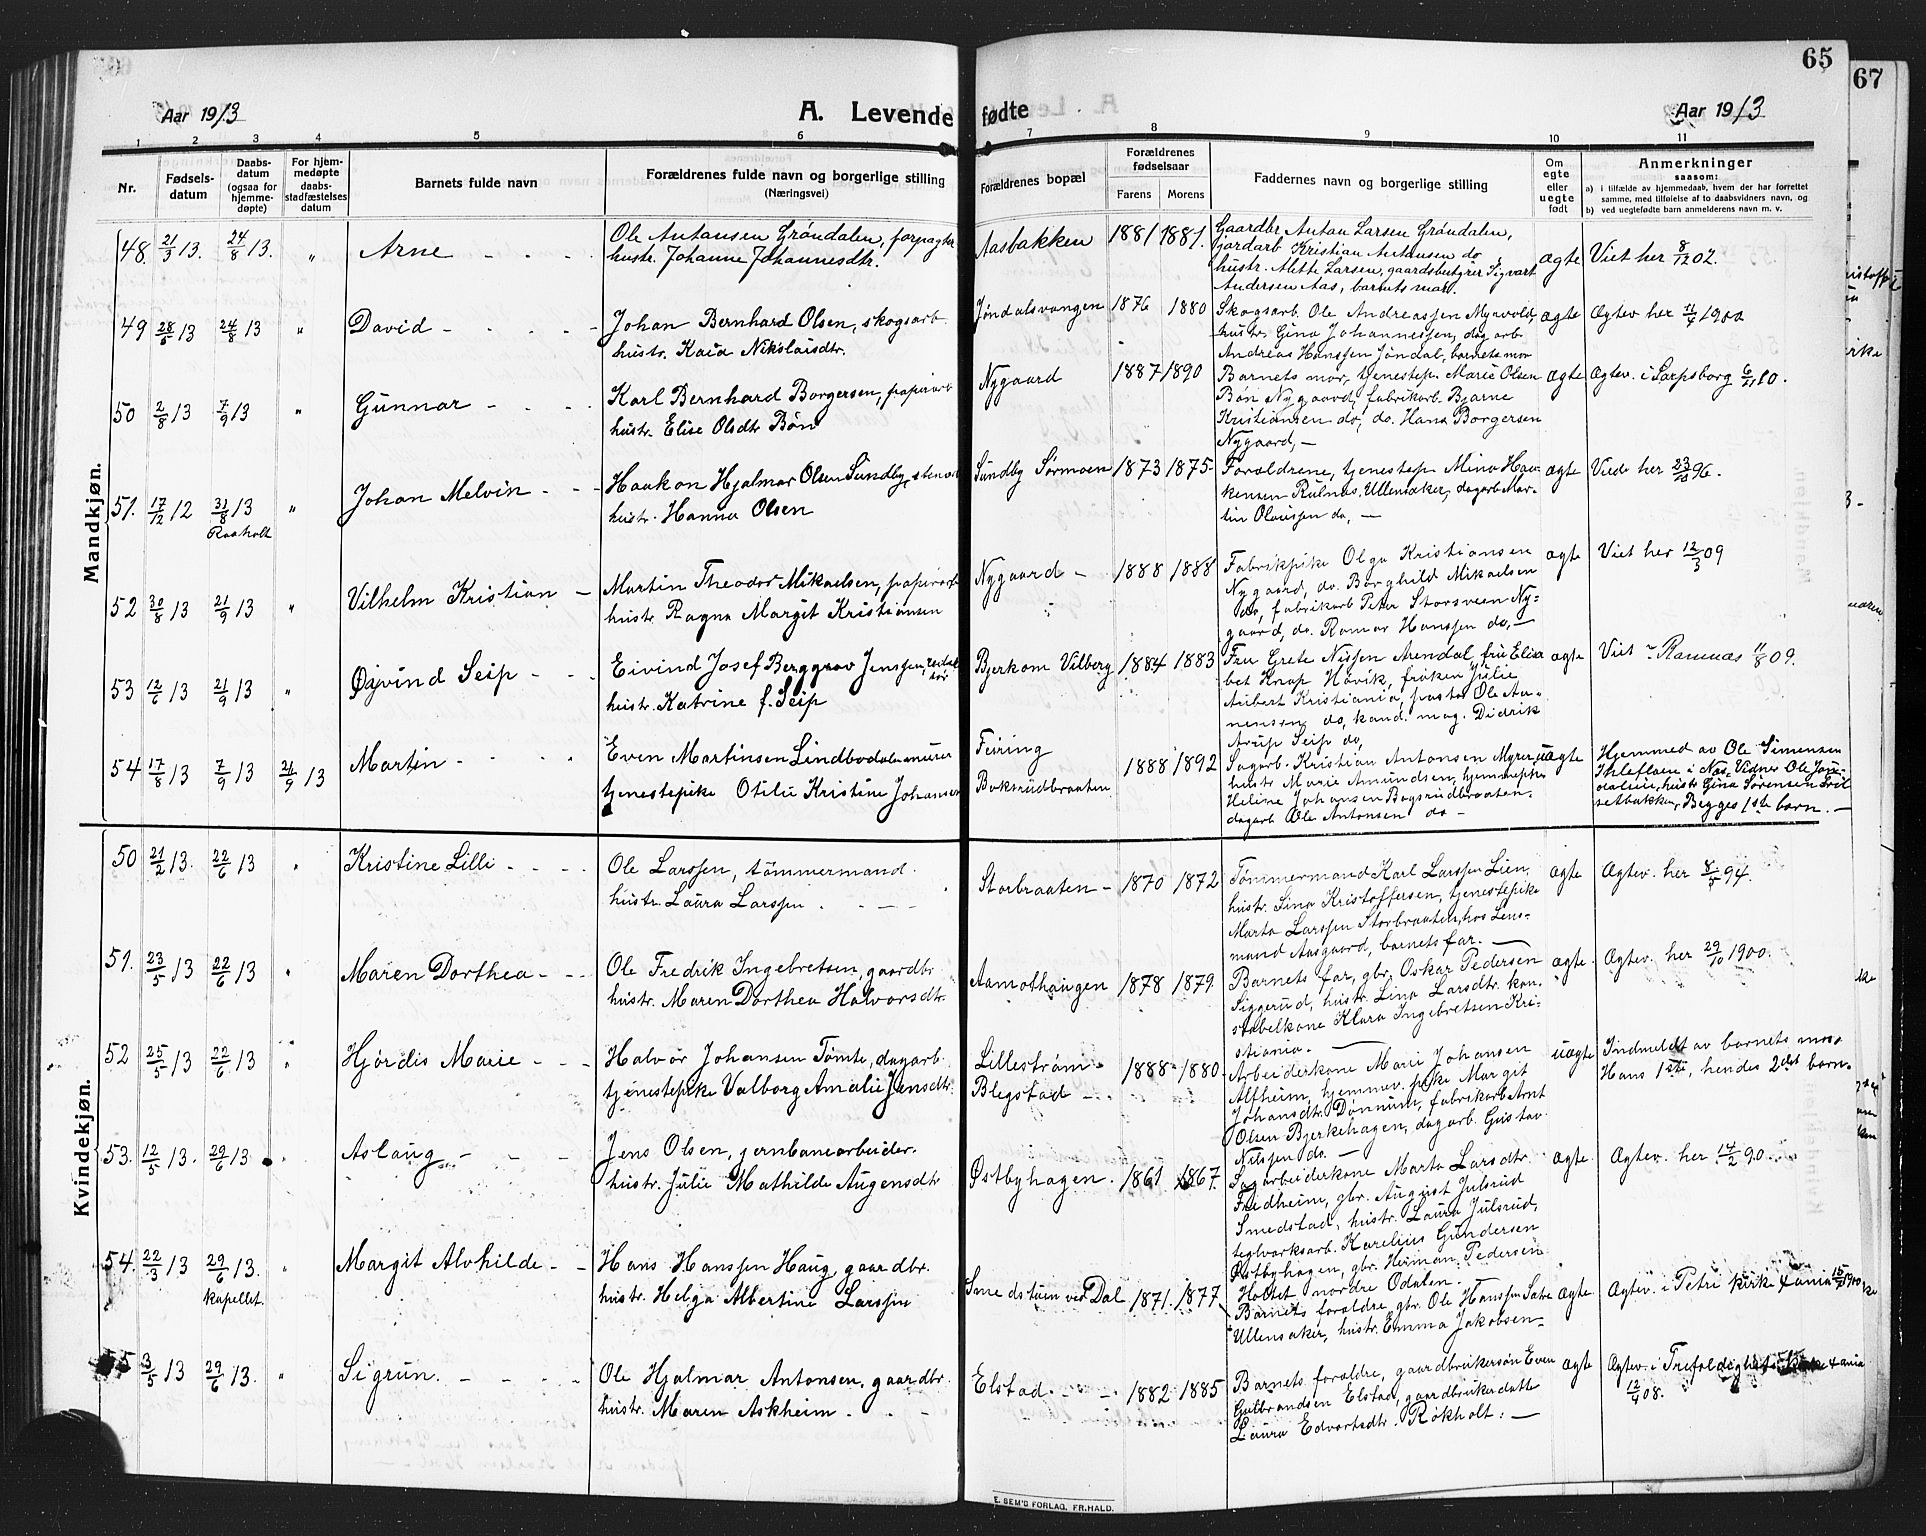 65
67
Aar 1913
A. Levende fødte
Aar 1913
1 2 3 4 5 6 7 8 9 10 11
Nr.
Fødsels-
datum
Daabs-
datum
(ogsaa for
hjemme-
døpte)
For hjem-
medøpte
daabs-
stadfæstelses
datum
Barnets fulde navn
Forældrenes fulde navn og borgerlige stilling
(Næringsvei)
Forældrenes bopæl
Forældrenes
fødselsaar
Farens Morens
Faddernes navn og borgerlige stilling
Om
egte
eller
uegte
født
Anmerkninger
saasom:
a) i tilfælde av hjemmedaab, hvem der har forrettet
samme, med tilføielse af to daabsvidners navn, og
b) ved uegtefødte barn anmelderens navn m. v.
Mandkjøn.
48. 21/3 13. 24/8 13. " Arne
Ole Antonsen Grøndalen, forpagter
hustr. Johanne Johannesdtr.
Aasbakken 1881 1881.
Gaardbr Anton Larsen Grøndalen,
jordarb Kristian Antonsen do
hustr. Mette Larsen, gaardsbestyrer Sigvart
Andersen Aas, barnets mor.
ægte Viet her 8/12 02.
49 28/6 13 24/8 13 " David
Johan Bernhard Olsen, skogsarb.
hustr. Kaia Nikolaisdtr.
Jøndalsvangen 1876 1880
Skogsarb. Ole Andreassen Myrvold,
hustr. Gina Johannessen, dagarb
Andreas Hanssen Jøndal, barnets mor
ægte Ægtev. her 1900
50 2/8 13 7/9 13 " Gunnar
Karl Bernhard Borgersen, papirarb
hustr. Elise Olsdtr Bøn
Nygaard 1887 1890
Barnets mor, tjenestep. Marie Olsen
Bøn Nygaard, fabrikarb. Bjarne
Kristiansen do, do. Hans Borgersen
Nygaard, —
ægte Ægtev. i Sarpsborg 10.
51. 17/12 12 31/8 13 Raaholt " Johan Melvin
Haakon Hjalmar Olsen Sundby,
hustr. Hanna Olsen
Sundby Sørmoen 1873 1875
Forældrene, tjenestep Mina Haa-
kensen Ullensaker, dagarb Mar-
tin Olaussen do, —
ægte Viede her 23/10 96.
52 30/8 13 21/9 13 " Vilhelm Kristian
Martin Theodor Mikaelsen, papirarb
hustr. Ragna Margit Kristiansen
Nygaard 1888 1888
Fabrikpike Olga Kristiansen
Nygaard, do. Borghild Mikaelsen
do, fabrikarb Peter Storsveen Ny-
gaard, do. Ragnar Hanssen do, —
ægte Viet her 12/3 09
53 12/6 13 21/9 13 " Øyvind Seip
Eivind Josef Berggrav Jenssen, redak-
tør
hustr. Katrine f. Seip
Bjerkom Vilberg 1884 1883
Fru Grete Nissen Arendal, fru Elisa
bet Knap Høvik, frøken Julie
Aubert Kristiania, prost Ole An-
nensen do, kand. mag. Didrik
Arup Seip do,
ægte Viet i Ramnæs 11/8 09.
54 17/8 13 7/9 13 21/9 13 Martin
Even Martinsen Lindbodalen murer
tjenestepike Otilie Kristine Johansen
Feiring
Boksrudbraaten
1888 1892
Sagarb. Kristian Antonsen Myrer,
hustr Marie Amundsen, hjemmepike
Heline Johansen Bogsrudbraaten
dagarb Ole Antonsen do —
uægte
Hjemmed av Ole Simensen
i Næs. Vidner Ole
hustr Gina Sørensen
Begges 1ste barn. —
Kvindekjøn.
50 21/2 13. 22/6 13 " Kristine Lilli
Ole Larssen, tømmermand.
hustr. Laura Larssen
Storbraaten 1870 1872
Tømmermand Karl Larssen Lien,
hustr. Lina Kristoffersen, tjenestepike
Marta Larssen Storbraaten, hos Lens-
mand Aasgaard, barnets far. —
ægte Ægtev. her 8/5 94.
51. 23/5 13 22/6 13 " Maren Dorthea
Ole Fredrik Ingebretsen, gaardbr
hustr. Maren Dorthea Halvorsdtr.
Aamothaugen 1878 1879
Barnets far, gbr. Oskar Pedersen
Siggerud, hustr. Lina Larsdtr. kon-
stabelkone Klara Ingebretsen Kri-
stiania. —
ægte Ægtev. her 29/10 1900.
52 25/5 13 22/6 13 " Hjørdis Marie
Halvor Johansen Tømte, dagarb.
tjenestepike Valborg Amalie Jensdtr
Lillestrøm
Blegstad
1888 1880
Arbeiderkone Marie Johansen
Alfheim, hjemmev. pike Margit
Johansdtr. Dønnum, fabrikarb Arnt
Olsen Bjerkehagen, dagarb. Gustav
Nilssen do. —
uægte
Indmeldt av barnets mor
Hans 1ste, hendes 2det barn.
53. 12/5 13. 29/6 13 " Aslaug
Jens Olsen, jernbanearbeider.
hustr. Julie Mathilde Augensdtr
Østbyhagen. 1861 1867.
Sagarbeiderkone Marta Larsdtr.
Fredheim, gbr. August Julsrud
Smedstad, hustr. Laura Julsrud,
teglværksarb. Karelius Gundersen
Østbyhagen, gbr. Herman Pedersen
Holtet nordre Odalen.
ægte Ægtev. her. 14/2 90.
54. 22/3 13 29/6 13. Kapellet. " Margit Alvhilde
Hans Hanssen Haug, gaardbr.
hustr. Helga Albertine Larssen
Smedstuen ved Dal 1871. 1877
Barnets forældre, gbr. Ole Hanssen
Ullensaker, hustr. Emma Jakobsen
ægte Ægtev. i Petri kirke
3/5 13 29/6 13. " Sigrun.
Ole Hjalmar Antonsen, gaardbr.
hustr. Maren Askheim.
Elstad. 1882 1885
Barnets forældre, gaardbrukersøn Even
Gulbrandsen Elstad, gaardbrukerdatte
Laura Edvartsdtr. Røkholt. —
ægte Ægtev. i Trefoldigheds
12/4 08.
E. SEM'S FORLAG, FR.HALD.